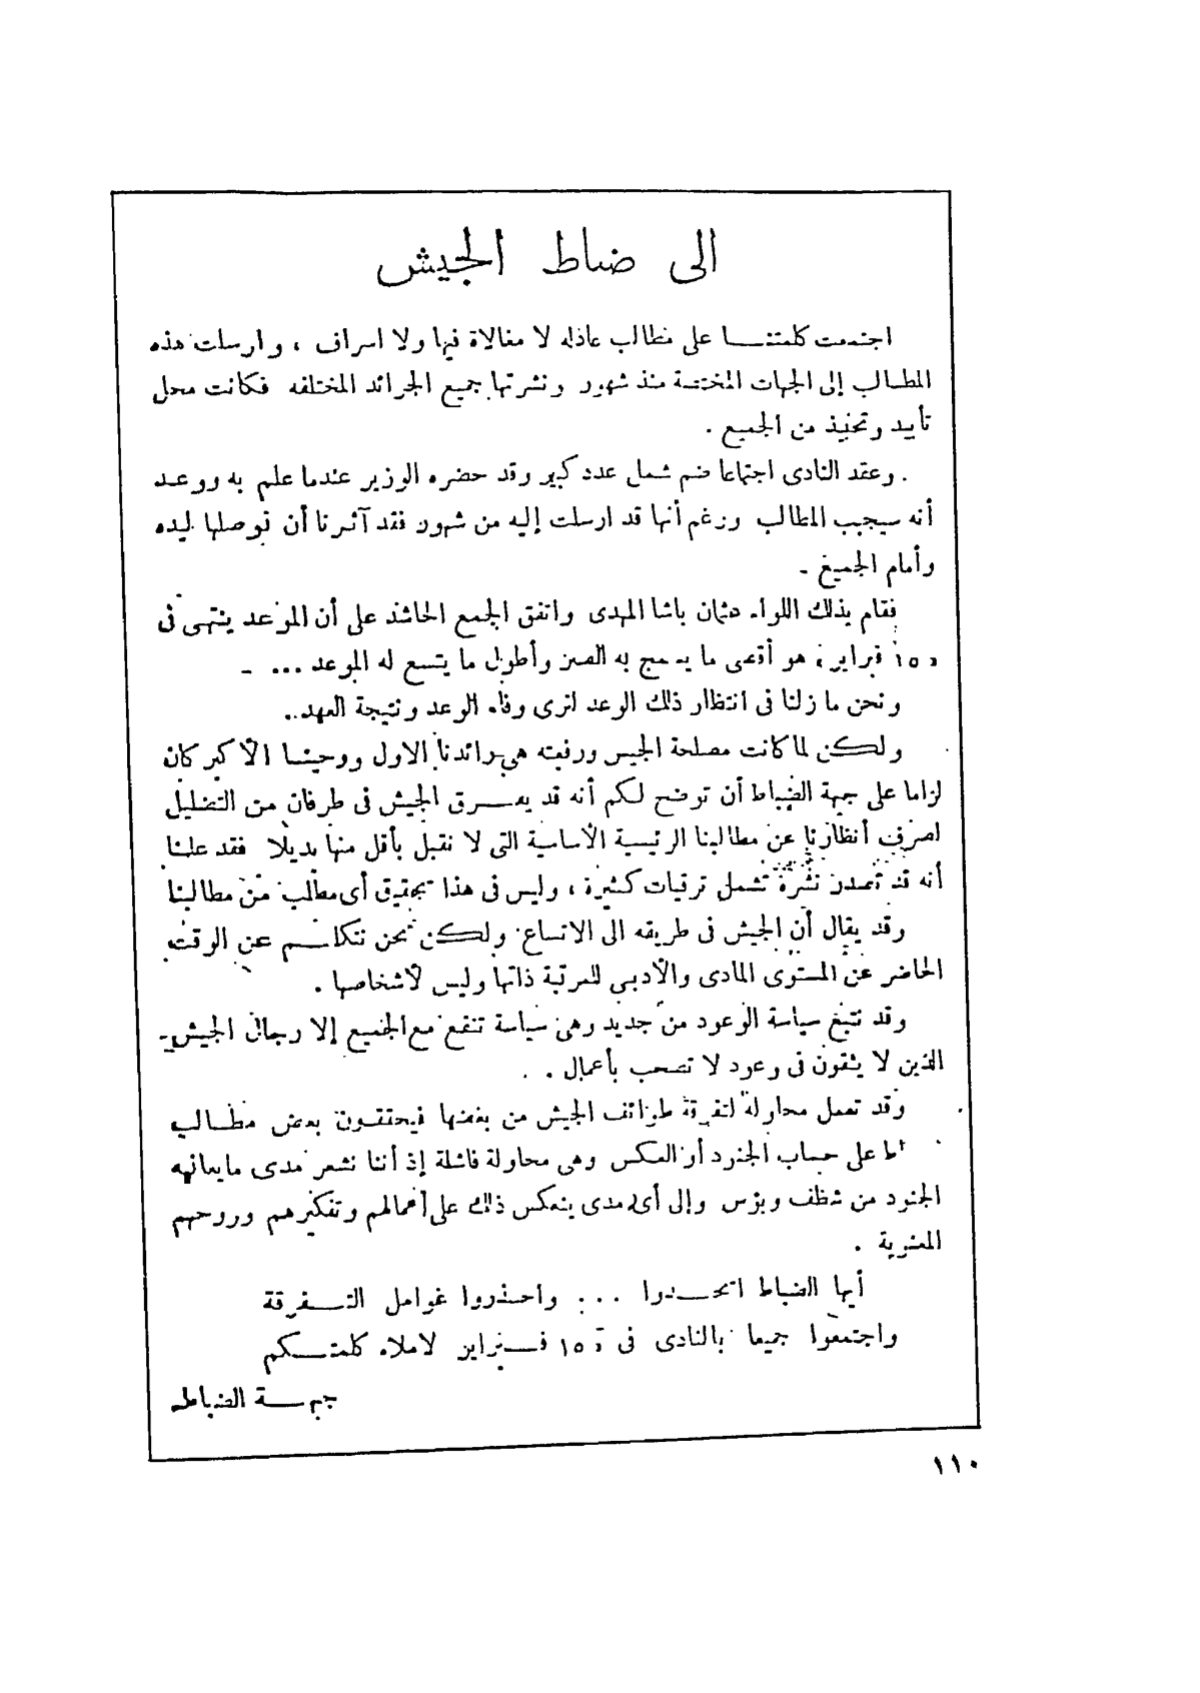 الى ضباط الجيش
اجتمعت كلمتنا على مطالب عادله لا مغالاة فيها ولا اسراف ، وارسلت هذه
المطالب إلى الجهات المختصة منذ شهور ونشرتها جميع الجرائد المختلفه فكانت محل
تأييد وتحبيذ من الجميع .
. وعقد النادى اجتماعا ضم شمل عدد كبير وقد حضره الوزير عندما علم به ووعد
أنه سيجيب المطالب ورغم أنها قد ارسلت إليه من شهور فقد آثرنا أن نوصلها ليده
وأمام الجميع -
فقام بذلك اللواء عثمان باشا المهدى واتفق الجمع الحاشد على أن الموعد ينتهى فى
١٥ فبراير ، هو أقصى ما يسمح به الصبر وأطول ما يتسع له الموعد ... -
ونحن ما زلنا فى انتظار ذلك الوعد لنرى وفاء الوعد ونتيجة العهد ..
ولكن لما كانت مصلحة الجيش ورفعته هى رائدنا الاول ووحينا الأكبر كان
لزاما على جبهة الضباط أن توضح لكم أنه قد يغرق الجيش فى طوفان من التضليل
لصرف أنظارنا عن مطالبنا الرئيسية الأساسية التى لا نقبل بأقل منها بديلا فقد علمنا
أنه قد تصدر نشرة تشمل ترقيات كثيرة ، وليس فى هذا تحقيق أى مطلب من مطالبنا
وقد يقال أن الجيش فى طريقه الى الاتساع ولكن نحن نتكلم عن الوقت
الحاضر عن المستوى المادى والأدبى للمرتبة ذاتها وليس لأشخاصها .
وقد تتبع سياسة الوعود من جديد وهى سياسة تنفع مع الجميع إلا رجال الجيش -
الذين لا يثقون فى وعود لا تصحب بأعمال . .
وقد تعمل محاولة لتفرقة طوائف الجيش من بعضها فيحققون بعض مطالب
على حساب الجنود أو العكس وهى محاولة فاشلة إذ أننا نشعر مدى ما يعانيه
الجنود من شظف وبؤس وإلى أى مدى ينعكس ذلك على أعمالهم وتفكيرهم وروحهم
المعنوية .
أيها الضباط اتحدوا ... واحذروا عوامل التفرقة
واجتمعوا جميعا بالنادى فى ١٥ فبراير لاملاء كلمتكم
جبهة الضباط
١١٠